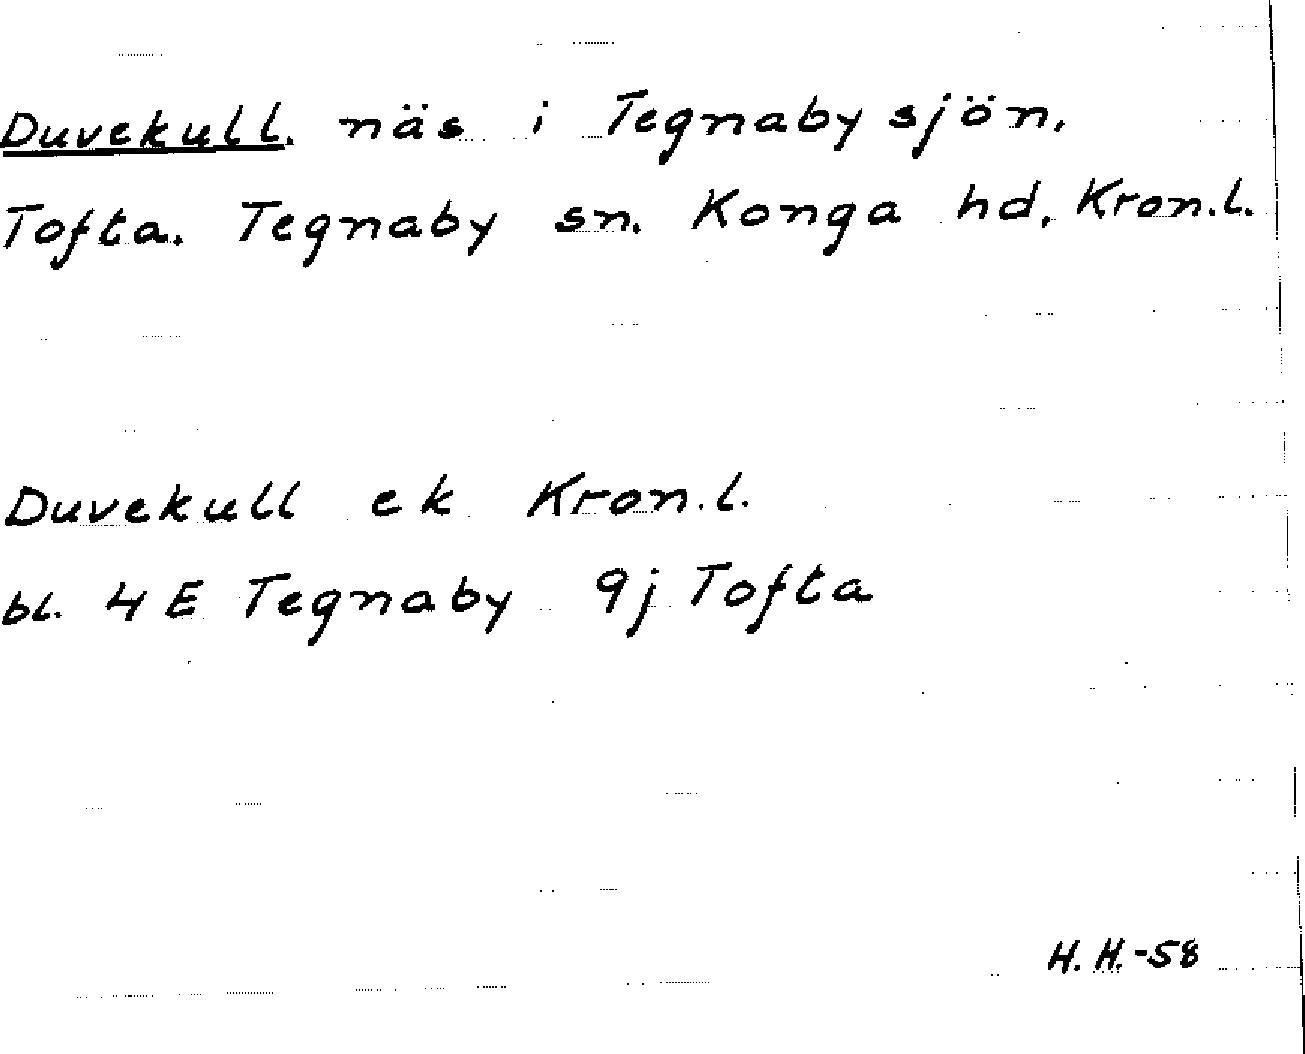 Duvekull. näs i Tegnaby sjön.
Tofta. Tegnaby sn. Konga hd. Kron.l.
Duvekull ek Kron.l.
bl. 4 E Tegnaby 9j Tofta
H.H.-58